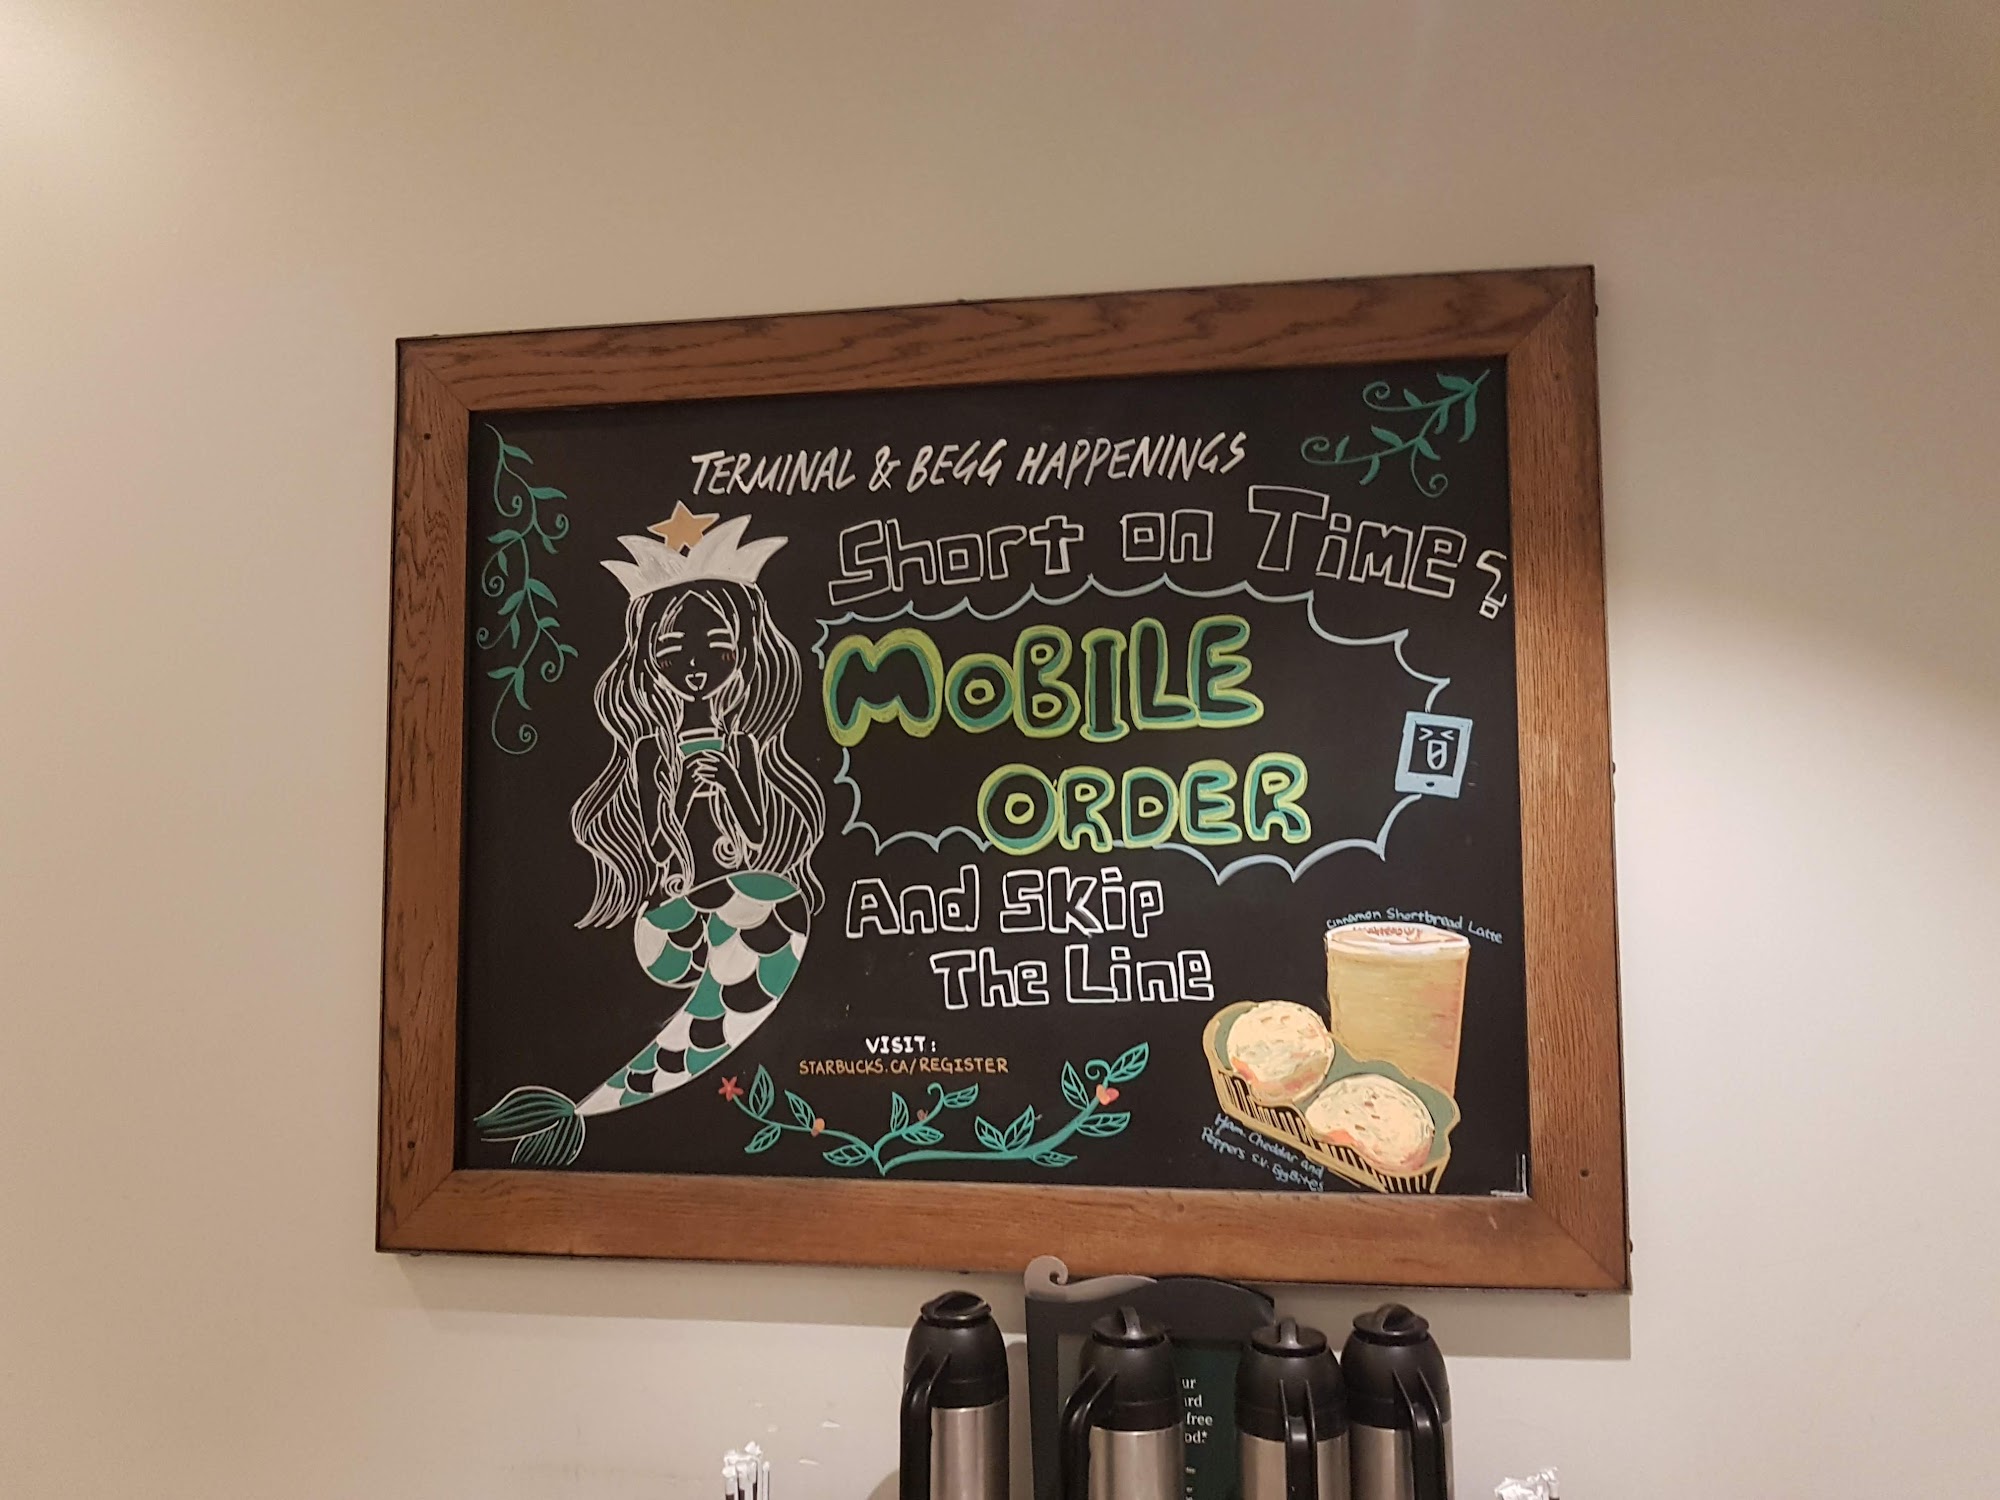 TERMINAL & BEGG HAPPENINGS
Short on TiME?
MoBILE
ORDER
And SKip
The Line
VISIT:
STARBUCKS.CA/REGISTER
Cinnamon Shortbread Latte
Ham, Cheddar and
Peppers S.V. EggBites
ur
ard
free
od.*